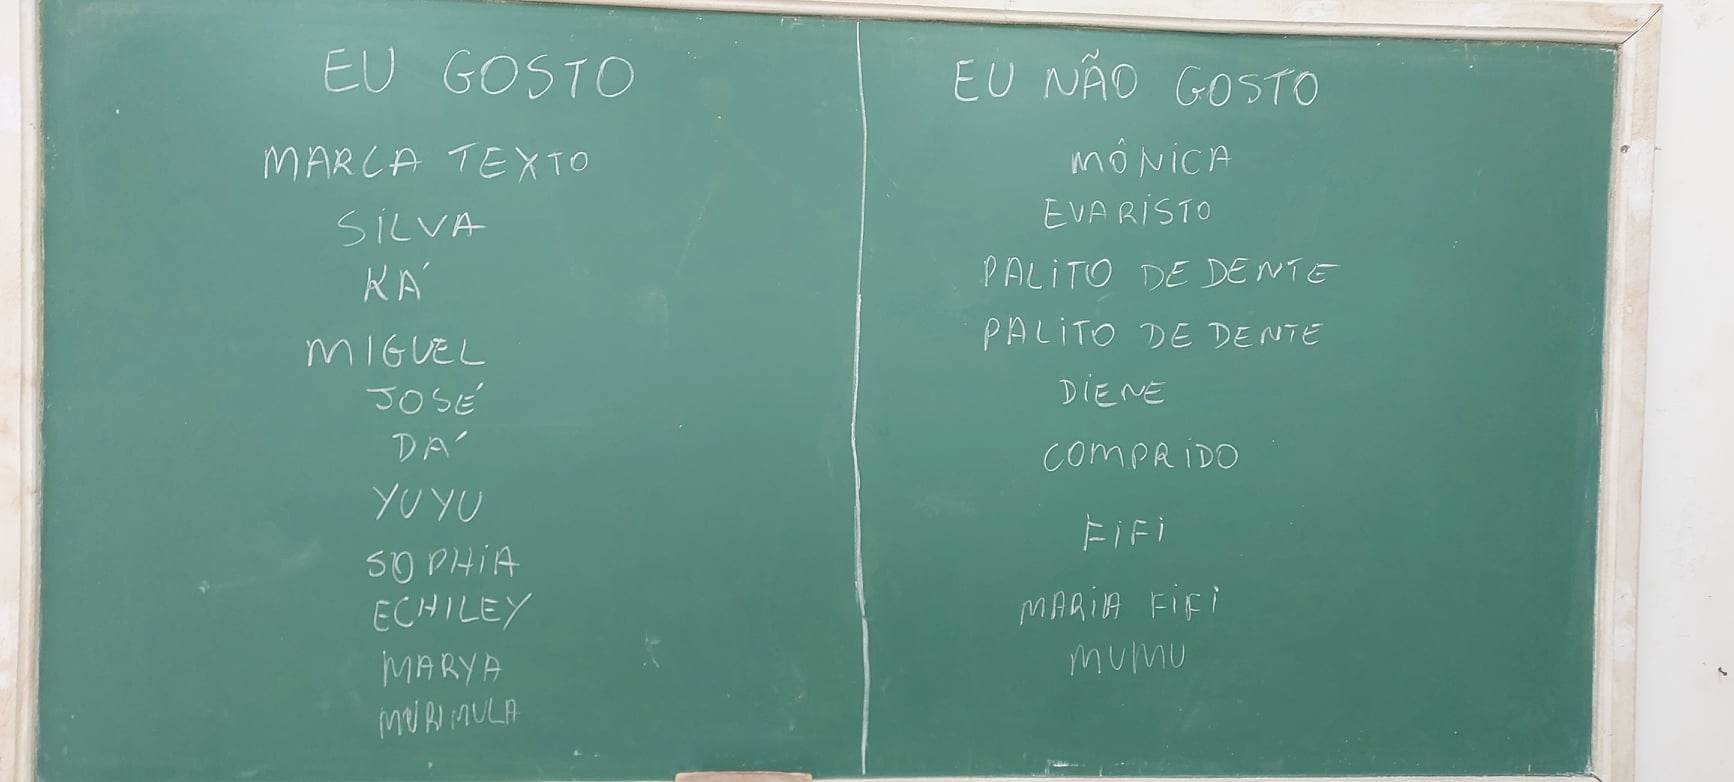 EU GOSTO
MARCA TEXTO
SILVA
KÁ
MIGUEL
JOSÉ
DÁ
YUYU
SOPHIA
ECHILEY
MARYA
MURIMULA
EU NÃO GOSTO
MÔNICA
EVARISTO
PALITO DE DENTE
PALITO DE DENTE
DIENE
COMPRIDO
FIFI
MARIA FIFI
MUMU